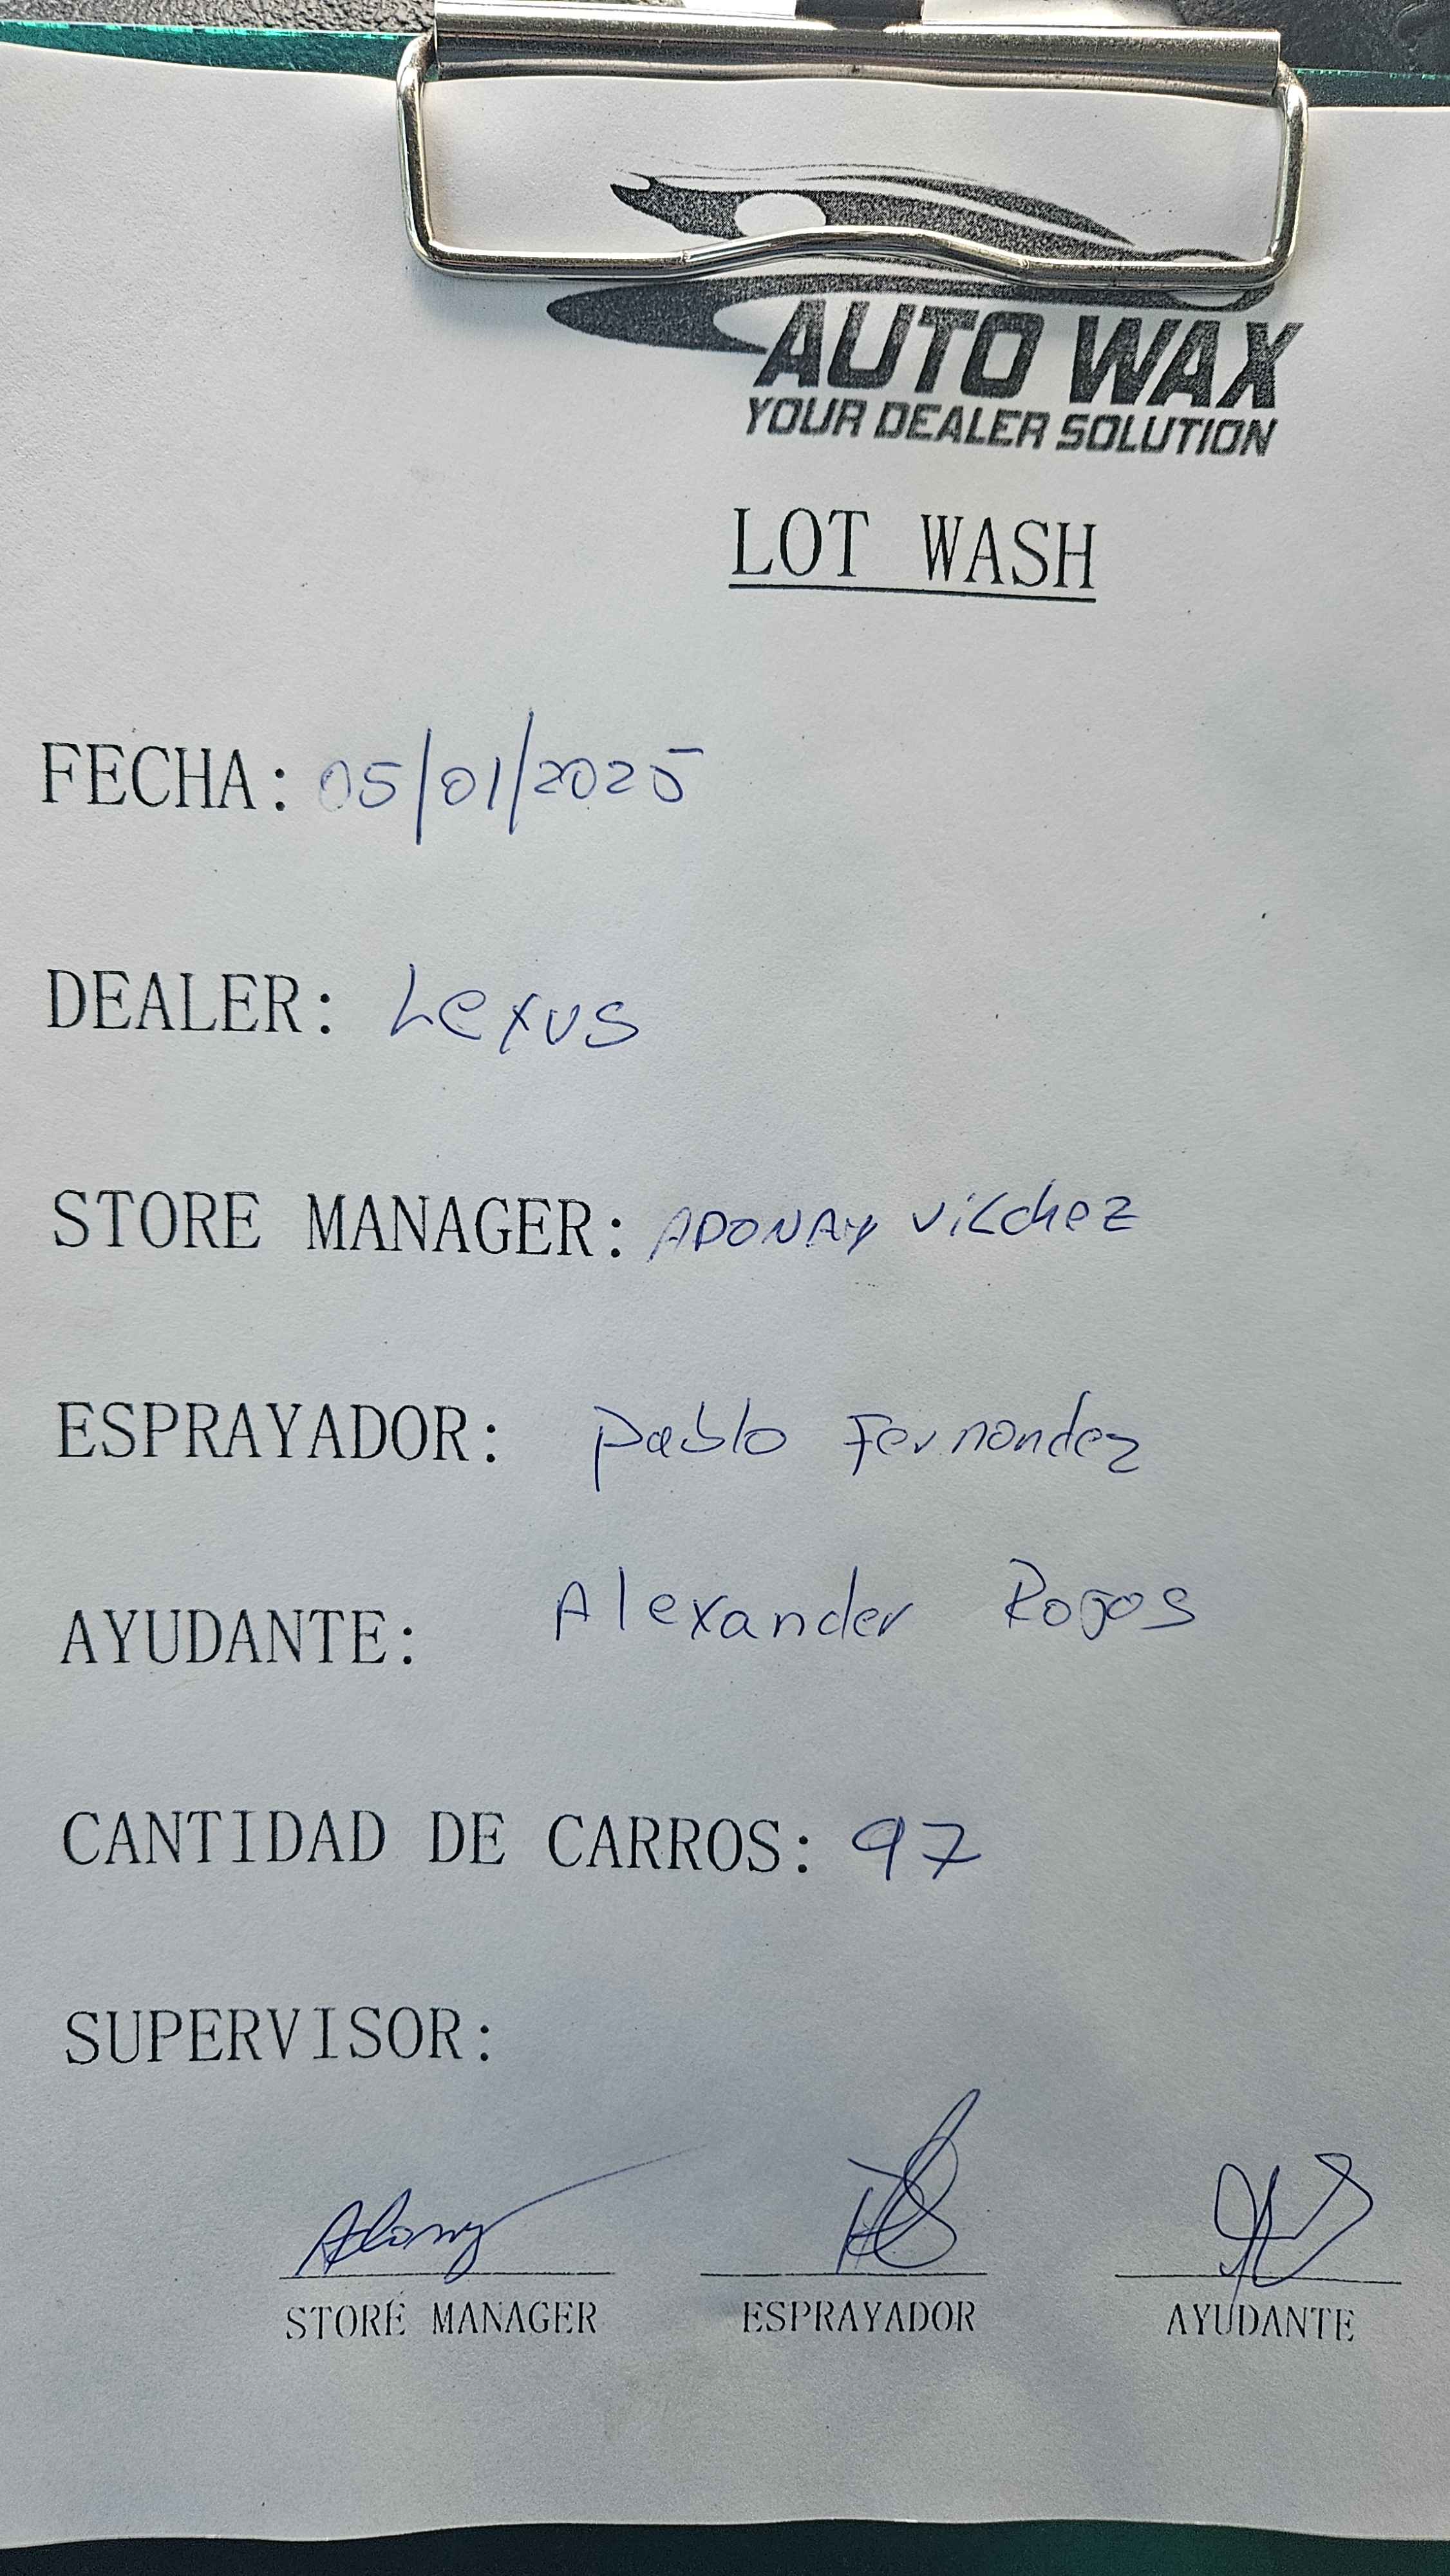 AUTO WAX
YOUR DEALER SOLUTION
LOT WASH
FECHA: 05/01/2025
DEALER: Lexus
STORE MANAGER: ADONAY VilchEZ
ESPRAYADOR: Pablo Fernandez
AYUDANTE: Alexander Rojos
CANTIDAD DE CARROS: 97
SUPERVISOR:
STORE MANAGER ESPRAYADOR AYUDANTE